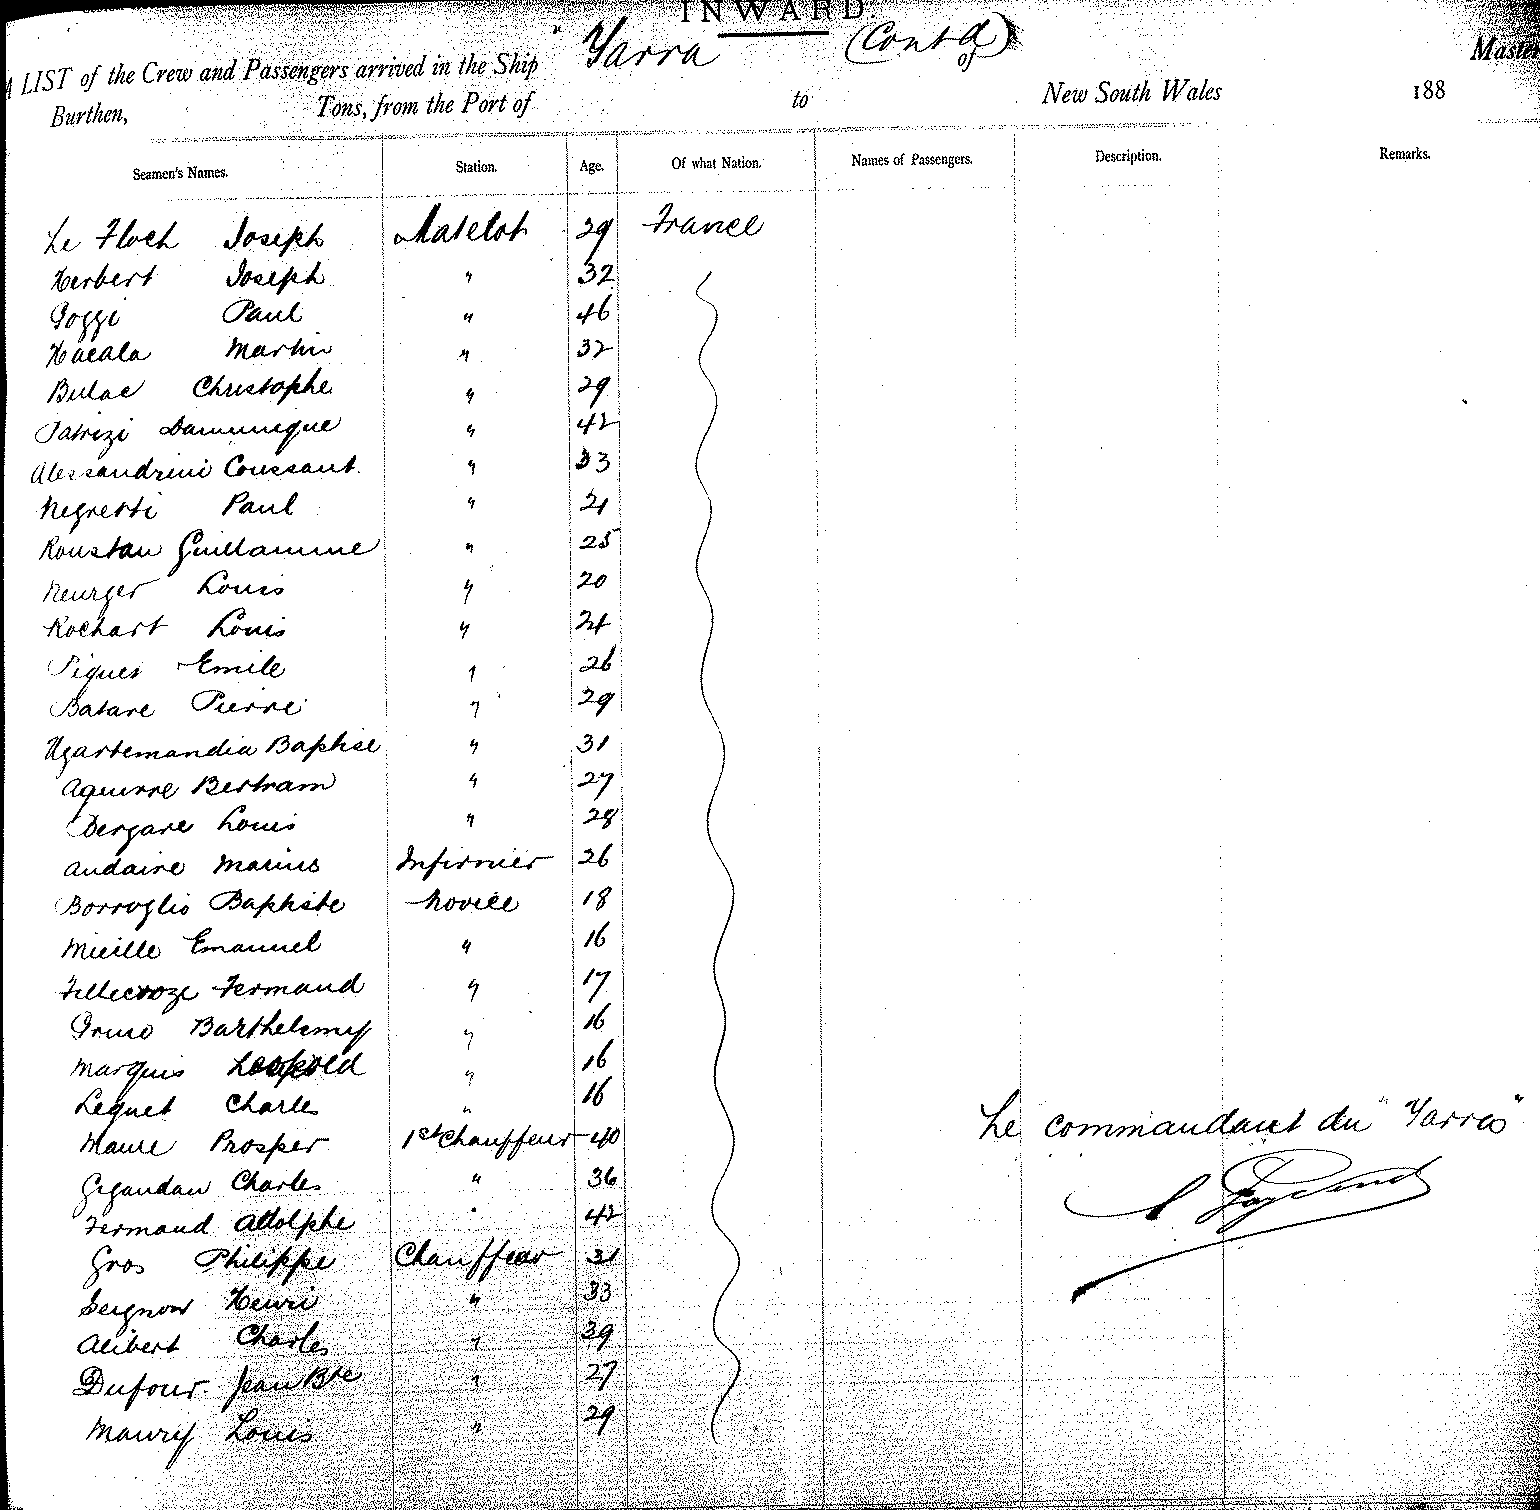 INWARD
A LIST of the Crew and Passengers arrived in the Ship Yarra (Contd) of Master
Burthen, Tons, from the Port of to New South Wales 188
Seamen's Names. Station. Age. Of what Nation. Names of Passengers. Description. Remarks.
Le Floch Joseph Matelot 29 France
Herbert Joseph " 32
Poggi Paul " 46
Hacala Martin " 32
Christophe " 29
Patrizi Dominique " 42
Alessandrini Toussant " 33
Negretti Paul " 21
Roustan Guillaumme " 25
Neurger Louis " 20
Rochart Louis " 24
Piquet Emile " 26
Batare Pierre " 29
Ugartemandia Baptise " 31
Aguirre Bertram " 27
Dergare Louis " 28
Audaire Marius Infirmier 26
Borroglio Baptiste Novice 18
Mieille Emanuel " 16
Fellecroze Fernand " 17
Barthelemy " 16
Marquis Leopold " 16
Lequet Charles " 16
Maure Prosper 1st Chauffeur 40
Le commandant du "Yarra"
Gigandan Charles " 36
Fermaud Adolphe " 42
Gros Philippe Chauffeur 31
Seignour Henri " 33
Alibert Charles " 39
Dufour Jean Bte " 27
Maurey Louis " 29